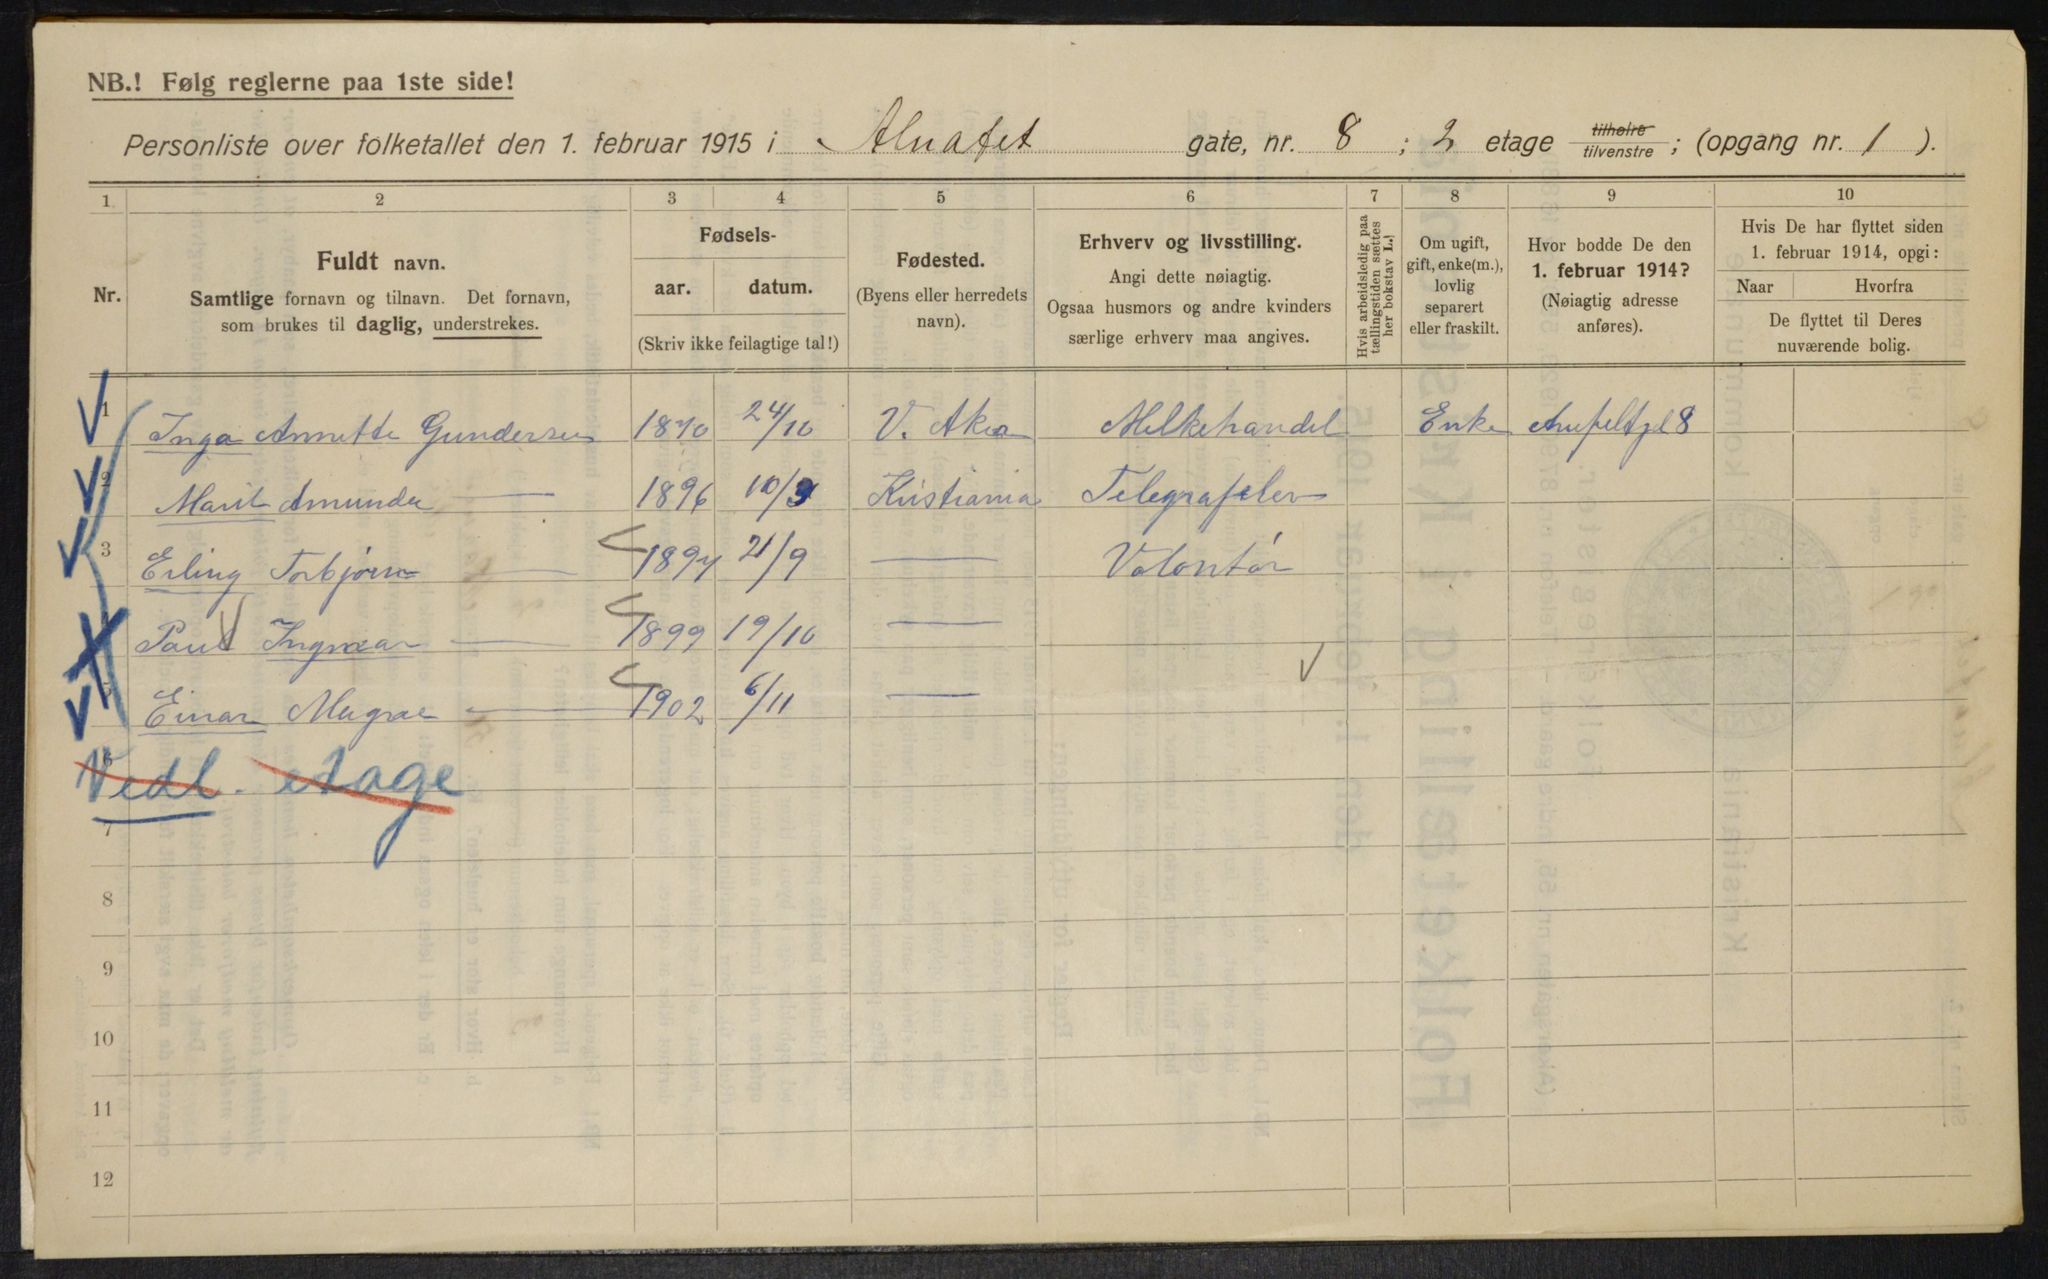 NB.! Følg reglerne paa 1ste side!
Personliste over folketallet den 1. februar 1915 i Alnafet gate, nr. 8 ; 2 etage tilhøire / tilvenstre ; (opgang nr. 1 ).
1 2 3 4 5 6 7 8 9 10
Nr.
Fuldt navn.
Samtlige fornavn og tilnavn. Det fornavn,
som brukes til daglig, understrekes.
Fødsels-
aar. datum.
(Skriv ikke feilagtige tal!)
Fødested.
(Byens eller herredets
navn).
Erhverv og livsstilling.
Angi dette nøiagtig.
Ogsaa husmors og andre kvinders
særlige erhverv maa angives.
Hvis arbeidsledig paa
tællingstiden sættes
her bokstav L.
Om ugift,
gift, enke(m.),
lovlig
separert
eller fraskilt.
Hvor bodde De den
1. februar 1914?
(Nøiagtig adresse
anføres).
Hvis De har flyttet siden
1. februar 1914, opgi:
Naar Hvorfra
De flyttet til Deres
nuværende bolig.
1 Inga Annette Gundersen 1870 24/10 V. Aker Melkehandel Enke 8
2 Marit Amunda — 1896 10/9 Kristiania Telegrafelev
3 Erling Torbjørn — 1897 21/9 — Volontør
Paul Ingvar — 1899 19/10 —
5 Einar Magne — 1902 6/11 —
6
Vedl. etage
7
8
9
10
11
12